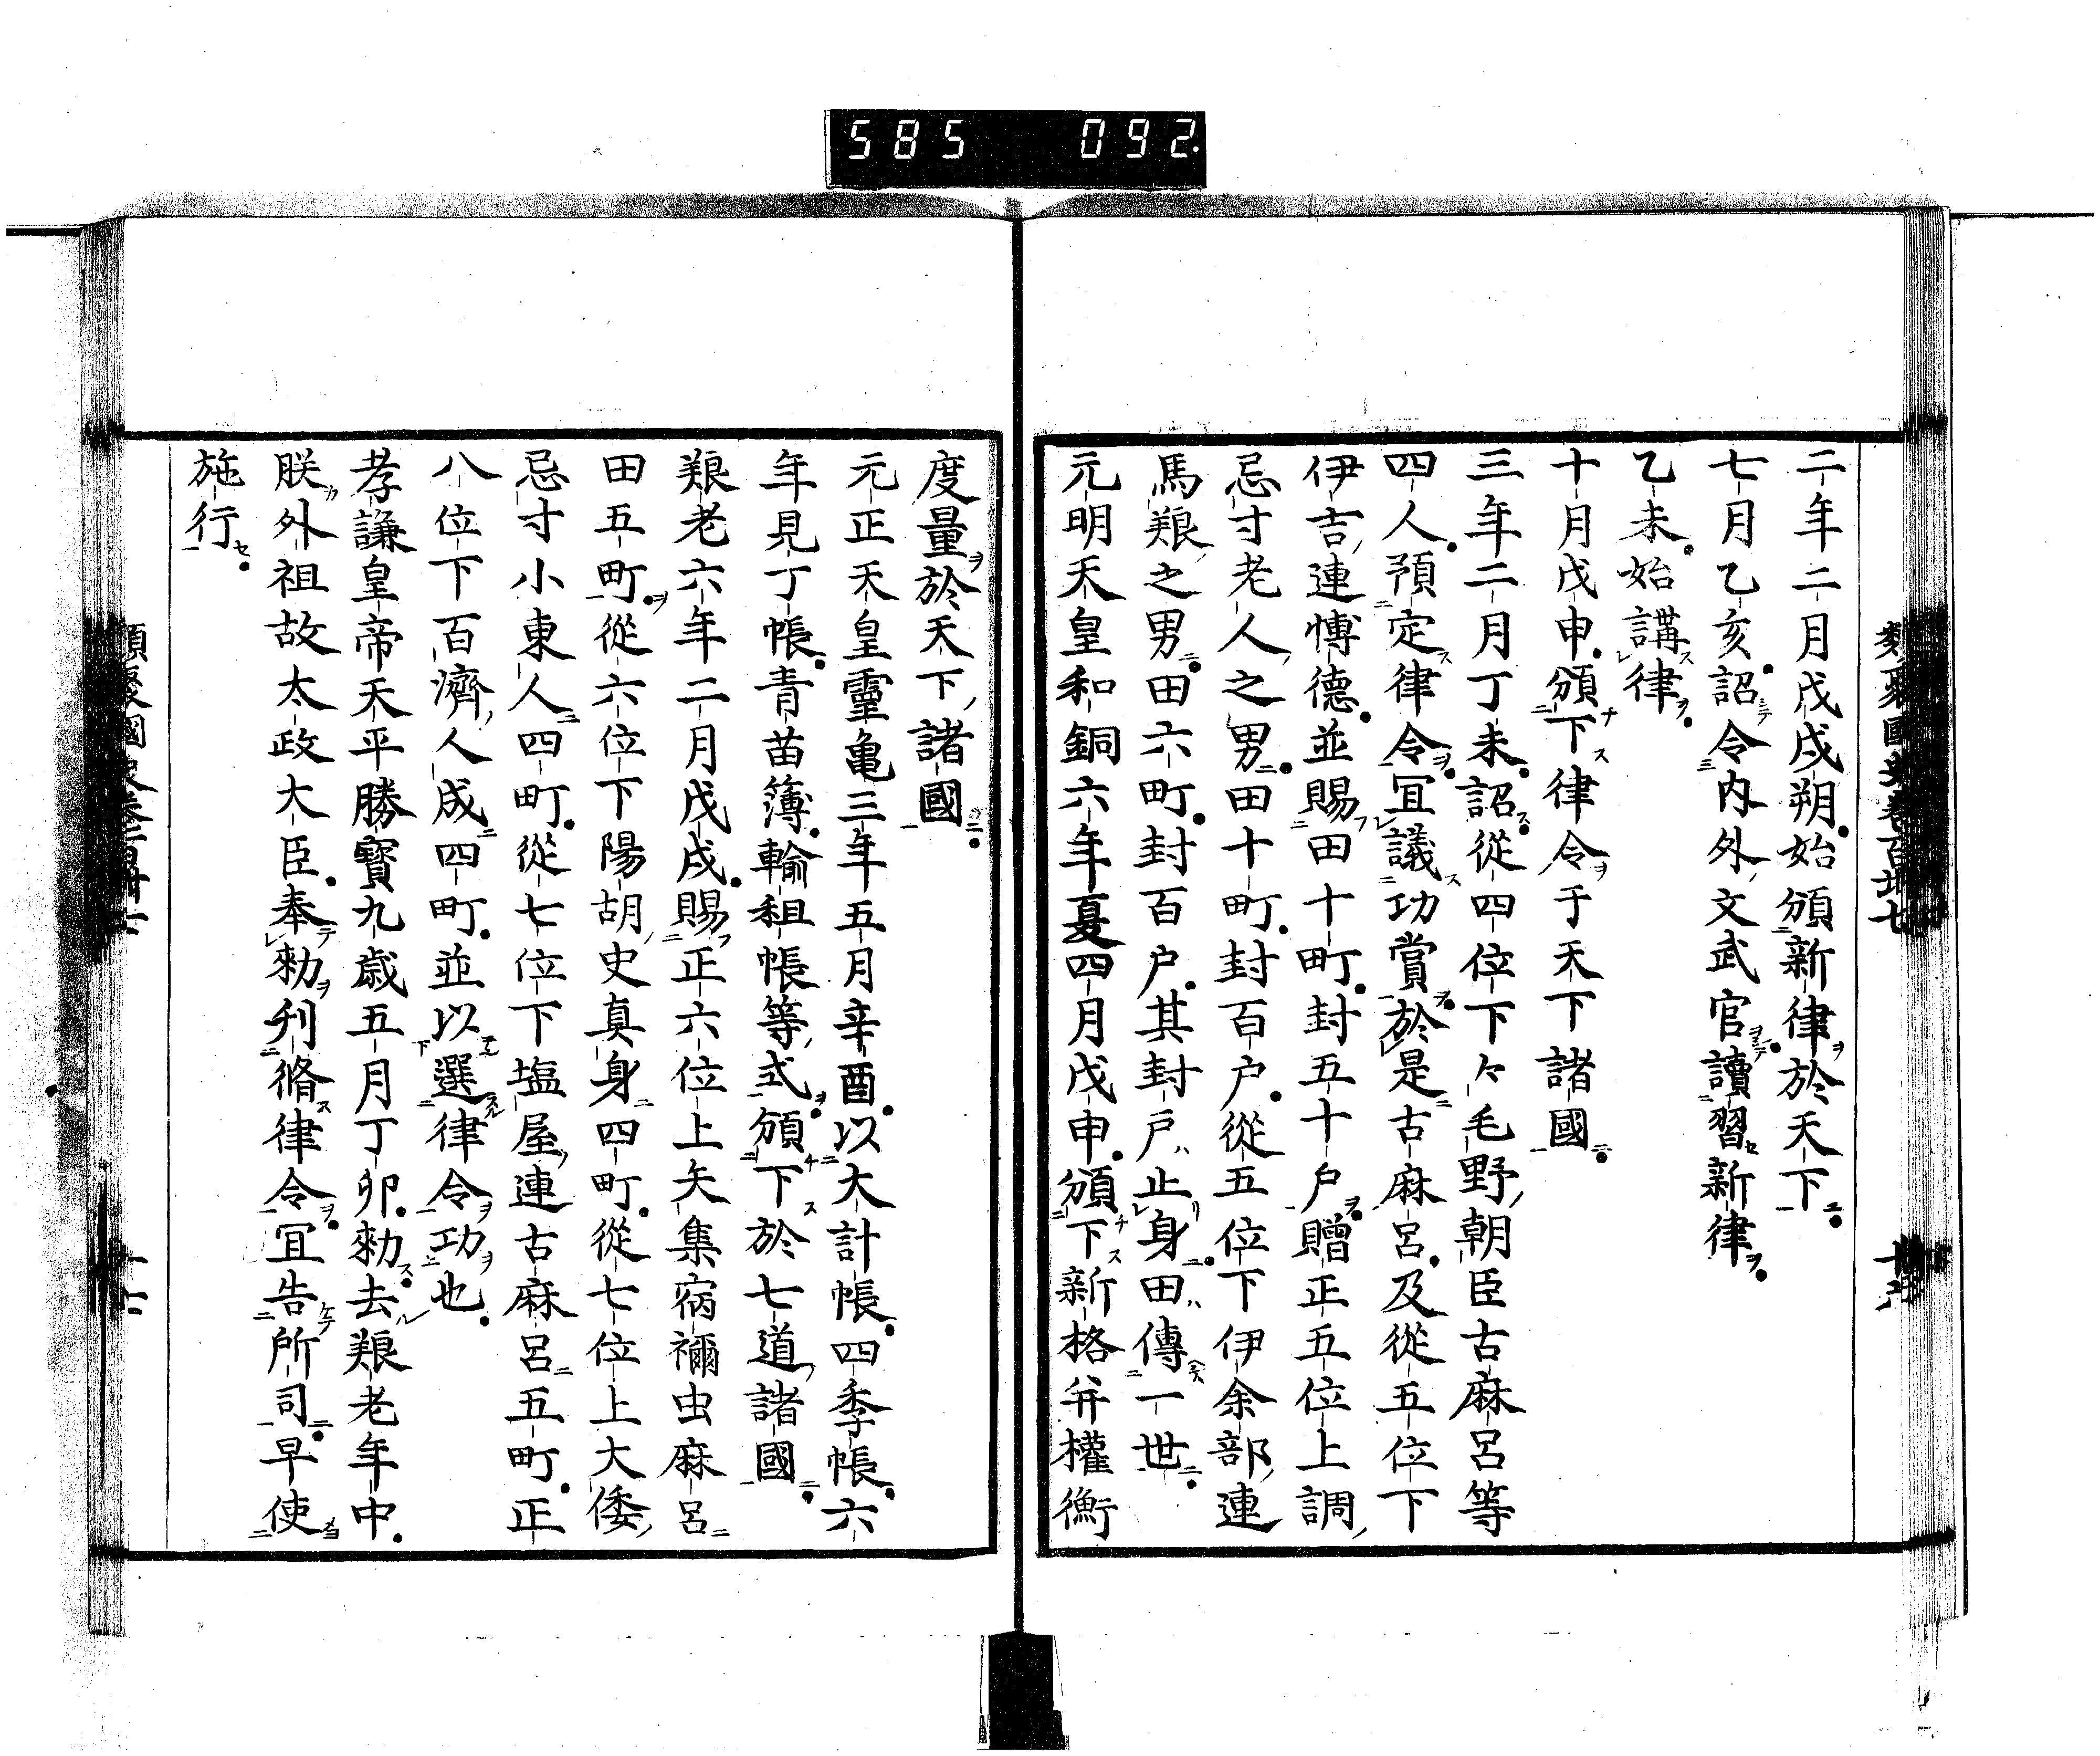 585 092
二年二月戊戌朔始頒新律於天下
七月乙亥詔令內外文武官讀習新律
乙未始講律
十月戊申頒下律令于天下諸國
三年二月丁未詔從四位下々毛野朝臣古麻呂等
四人預定律令宜議功賞於是古麻呂及從五位下
伊吉連博德並賜田十町封五十戶贈正五位上調
忌寸老人之男田十町封百戶從五位下伊余部連
馬飬之男田六町封百戶其封戶止身田傳一世
元明天皇和銅六年夏四月戊申頒下新格并權衡
度量於天下諸國
元正天皇靈亀三年五月辛酉以大計帳四季帳六
年見丁帳青苗簿輸租帳等式頒下於七道諸國
飬老六年二月戊戌賜正六位上矢集宿禰虫麻呂
田五町從六位下陽胡史真身四町從七位上大倭
忌寸小東人四町從七位下塩屋連古麻呂五町正
八位下百濟人成四町並以選律令功也
孝謙皇帝天平勝寶九歲五月丁卯勅去飬老年中
朕外祖故太政大臣奉勅刋脩律令宜告所司早使
施行